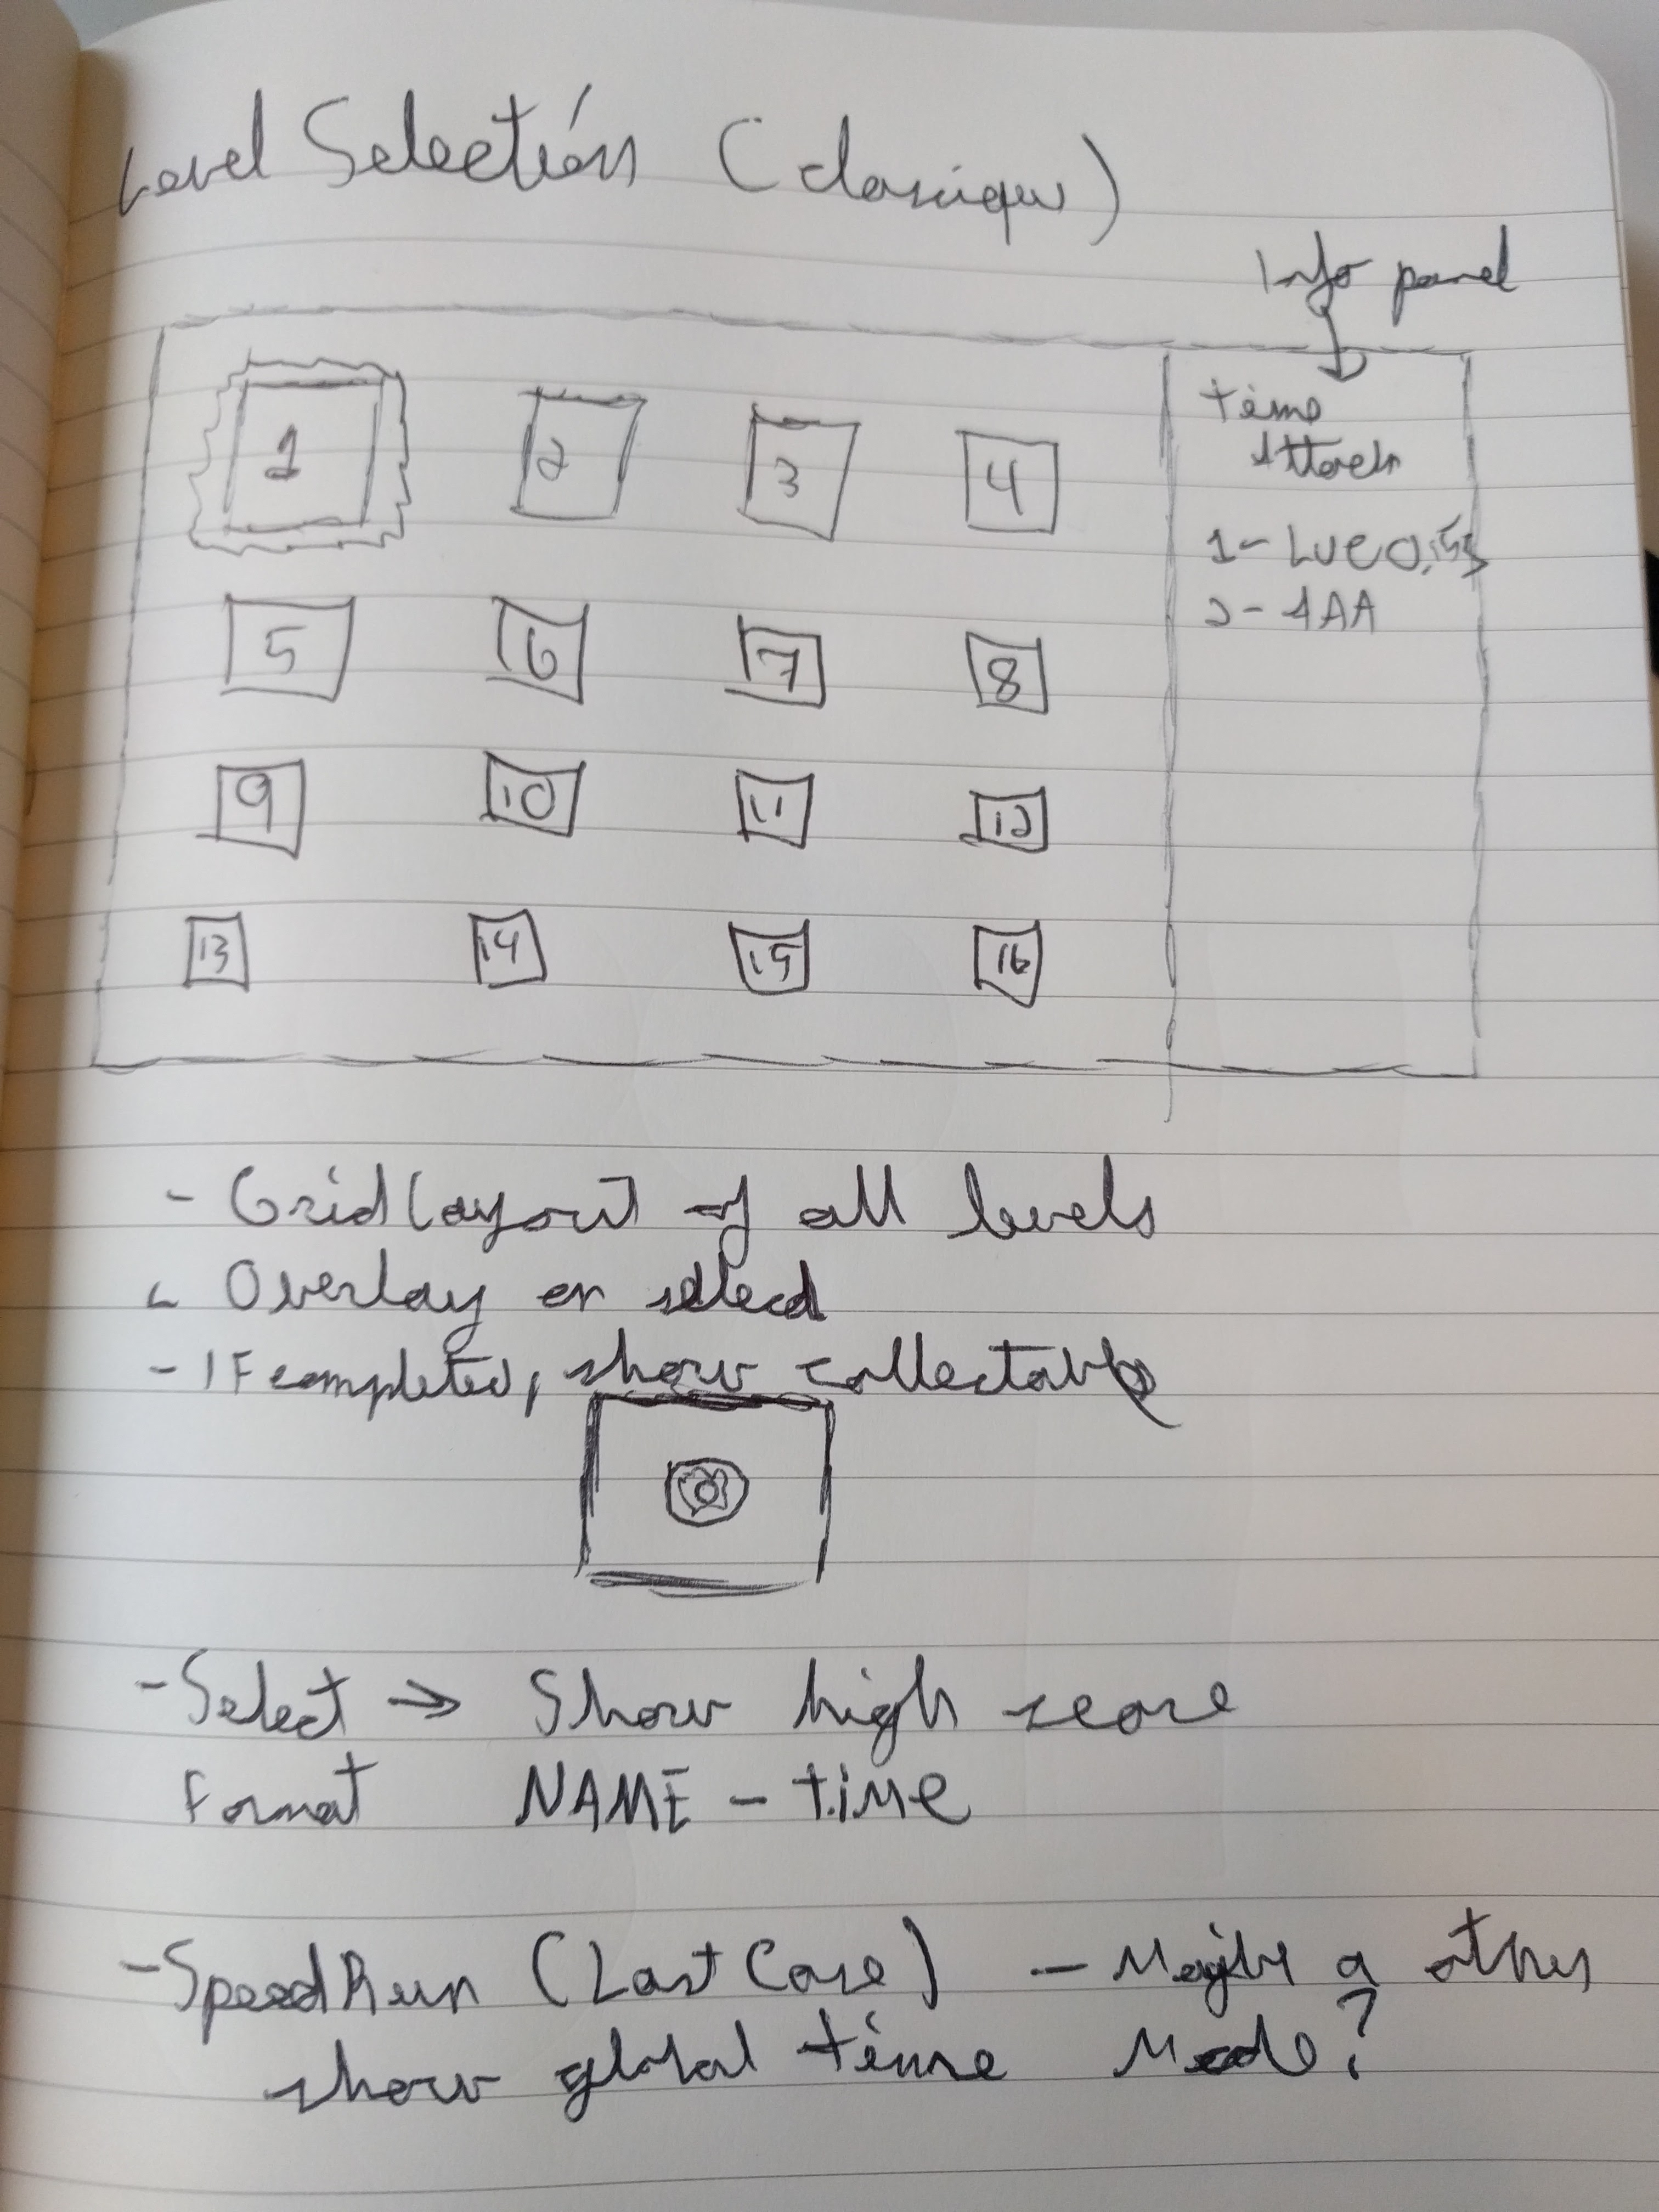 Level Selection (classique)
Info panel
1 2 3 4
time
Attack
1- LUC 0,
2- AAA
5 6 7 8
9 10 11 12
13 14 15 16
- Grid layout of all levels
- Overlay on selected
- IF completed, show collectable
- Select → Show high score
Format NAME - time
- SpeedRun (Last Case) - Maybe a other
show global time Mode?